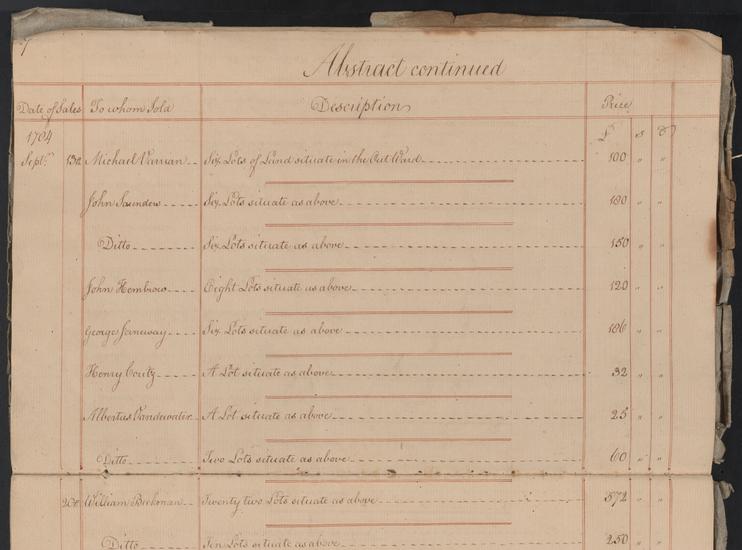 Abstract continued
Date of Sales To whom Sold Description Price
1784 £ s d
Septr. 13th Michael Varrian Six Lots of Land situate in the Out Ward 100 " "
John Saunders Six Lots situate as above 180 " "
Ditto Six Lots situate as above 150 " "
John Hembrow Eight Lots situate as above 120 " "
George Janeway Six Lots situate as above 186 " "
Henry A Lot situate as above 32 " "
Albertus Vandewater A Lot situate as above 25 " "
Ditto Two Lots situate as above 60 " "
William Beekman Twenty two Lots situate as above 572 " "
Ditto Ten Lots situate as above 250 " "